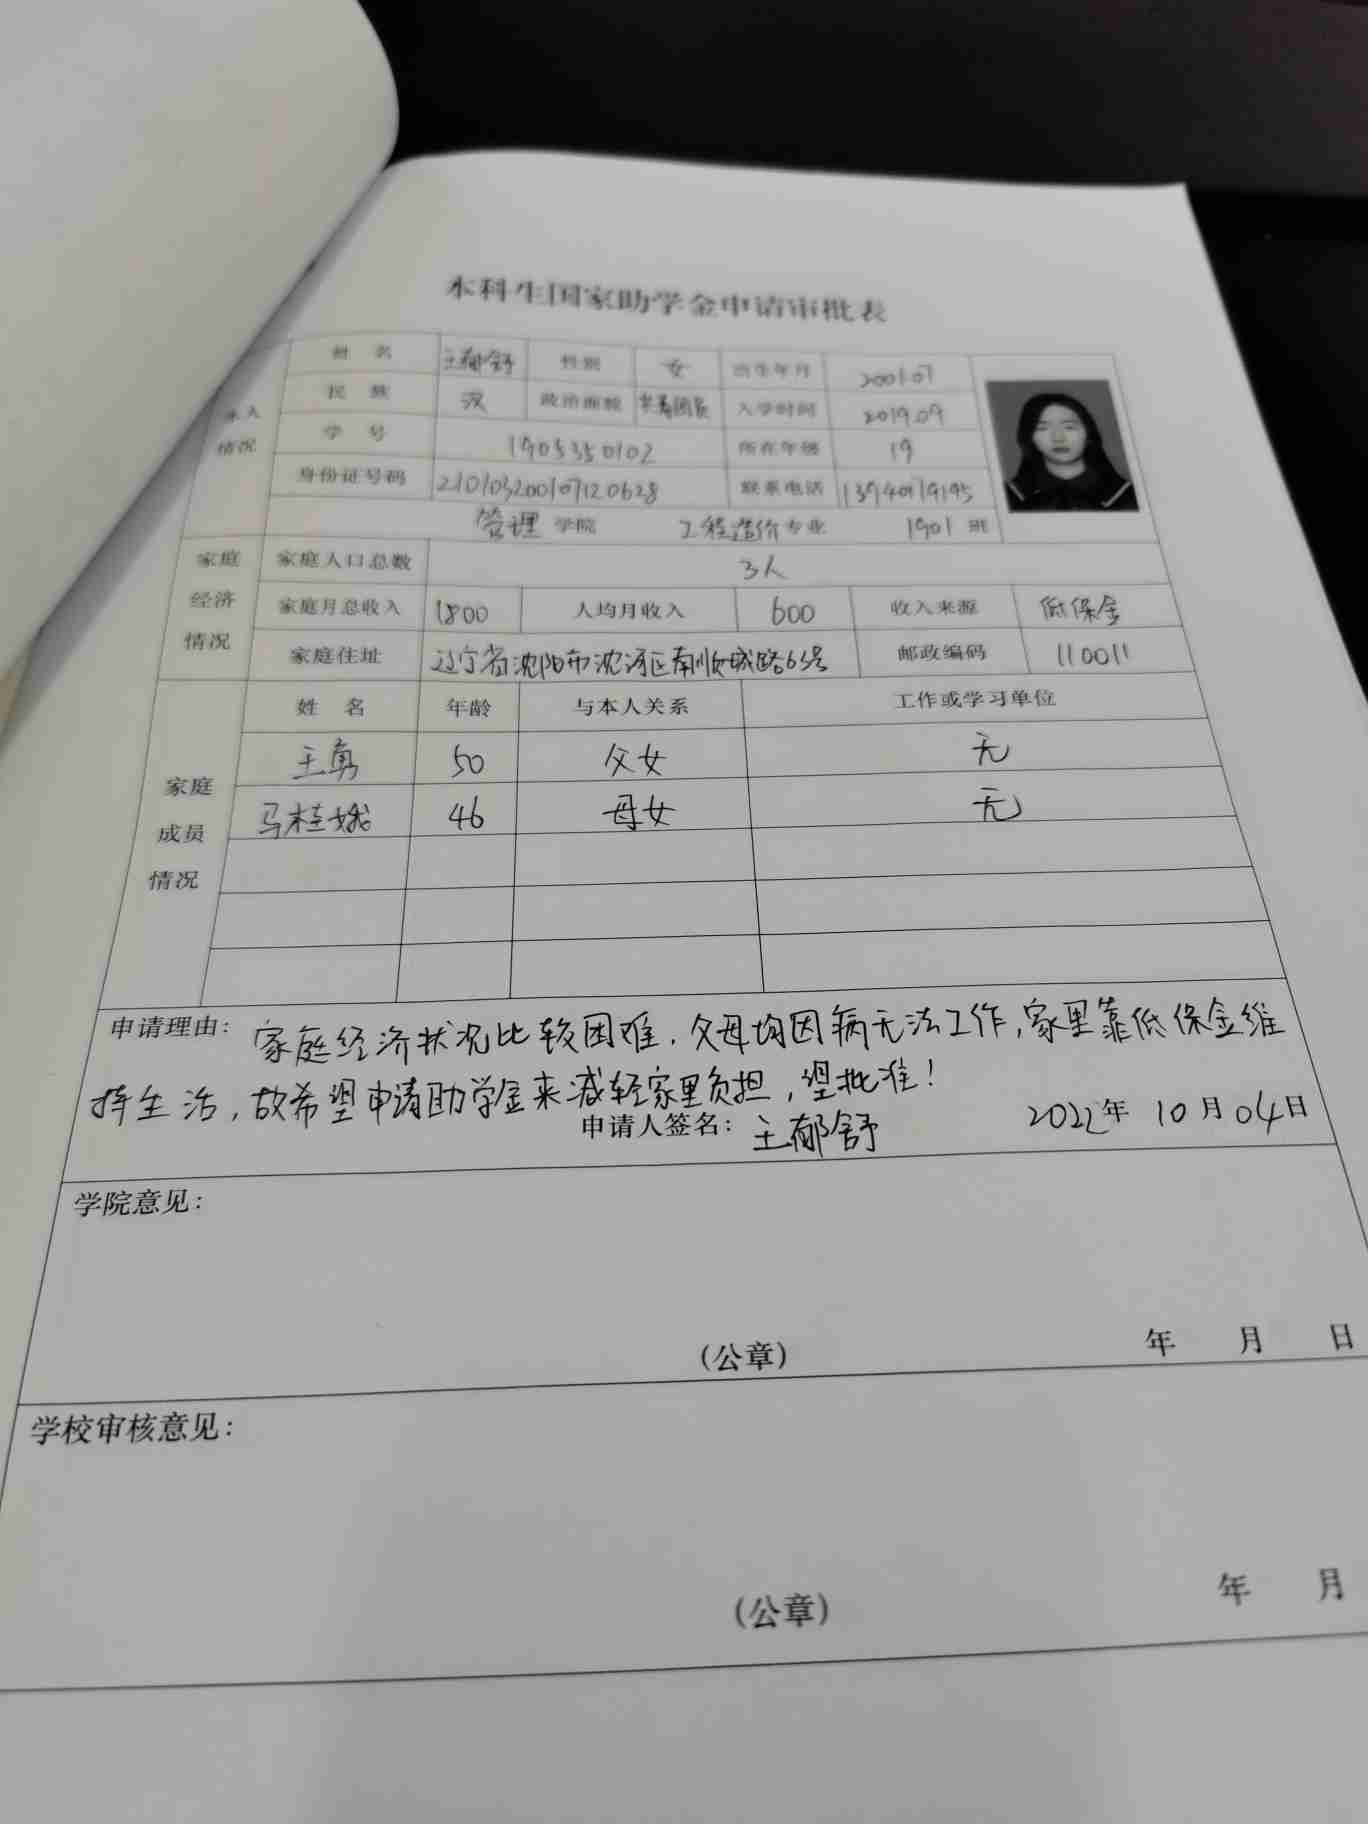 本科生国家助学金申请审批表
姓 名 王郁舒 性别 女 出生年月 2001.07
民 族 汉 政治面貌 共青团员 入学时间 2019.09
本人
情况
学 号 1905350102 所在年级 19
身份证号码 210103200107120628 联系电话 13940179195
管理 学院 工程造价 专业 1901 班
家庭
经济
情况
家庭人口总数 3人
家庭月总收入 1800 人均月收入 600 收入来源 低保金
家庭住址 辽宁省沈阳市沈河区南顺城路65号 邮政编码 110011
家庭
成员
情况
姓 名 年龄 与本人关系 工作或学习单位
王勇 50 父女 无
马桂娥 46 母女 无
申请理由: 家庭经济状况比较困难,父母均因病无法工作,家里靠低保金维
持生活,故希望申请助学金来减轻家里负担,望批准!
申请人签名: 王郁舒 2022年 10月 04日
学院意见:
(公章) 年 月 日
学校审核意见:
(公章) 年 月